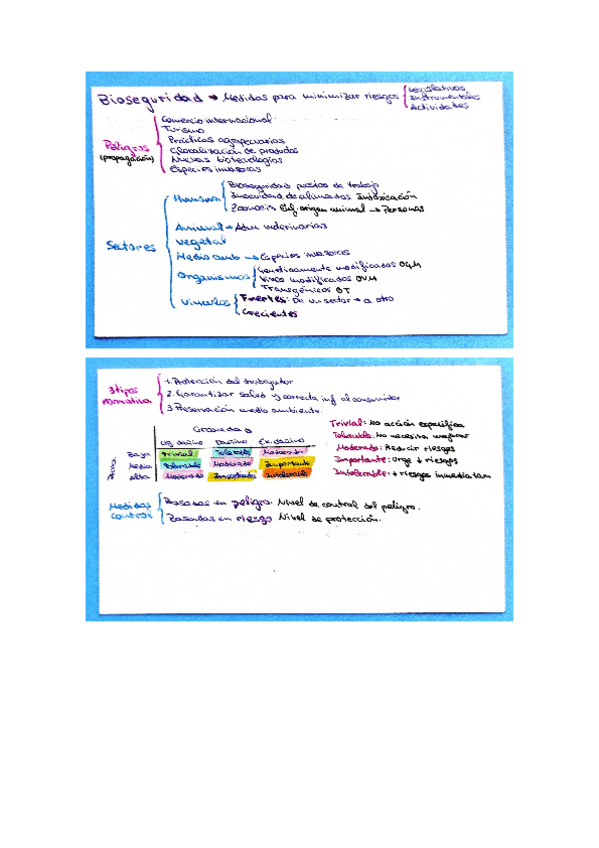 Bioseguridad → Medidas para minimizar riesgos { Legislativas
Instrumentales
Actividades
Peligros (propagación) { Comercio internacional
Turismo
Prácticas agropecuarias
Globalización de productos
Nuevas biotecnologías
Especies invasoras
Sectores { Humana { Bioseguridad puestos de trabajo
Inocuidad de alimentos Intoxicación
Zoonosis Enf. origen animal → Personas
Animal → Adm veterinarias
Vegetal
Medio amb → Especies invasoras
Organismos { Genéticamente modificados OGM
Vivos modificados OVM
Transgénicos OT
Vínculos { Fuertes: De un sector → a otro
Crecientes
3 tipos normativa { 1. Protección del trabajador
2. Garantizar salud y correcta inf al consumidor
3. Preservación medio ambiente.
Gravedad
Lig. dañino Dañino Ex. dañino
Prob.
Baja Trivial Tolerable Moderado
Media Tolerable Moderado Importante
Alta Moderado Importante Intolerable
Trivial: No acción específica
Tolerable: No necesita mejorar
Moderado: Reducir riesgos
Importante: Urge ↓ riesgos
Intolerable: ↓ riesgos inmediatam
Medidas control { Basadas en peligro. Nivel de control del peligro.
Basadas en riesgo Nivel de protección.